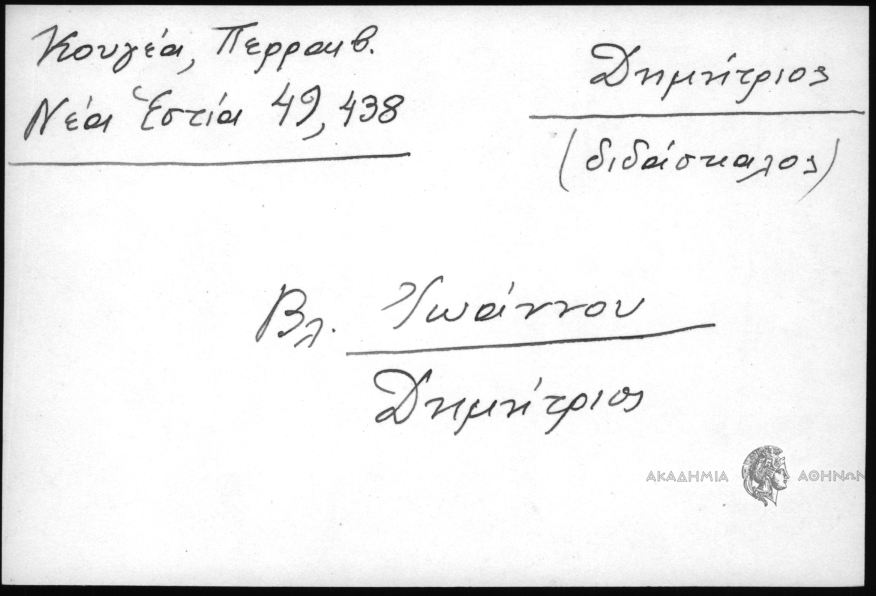 Κουγέα, Περραιβ.
Νέα Ἑστία 49, 438
Δημήτριος
(διδάσκαλος)
Βλ. Ἰωάννου
Δημήτριος
ΑΚΑΔΗΜΙΑ ΑΘΗΝΩΝ